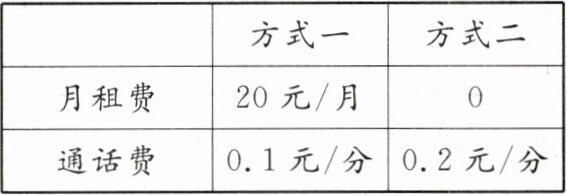 方式一 方式二
月租费 20元/月 0
通话费 0.1元/分 0.2元/分